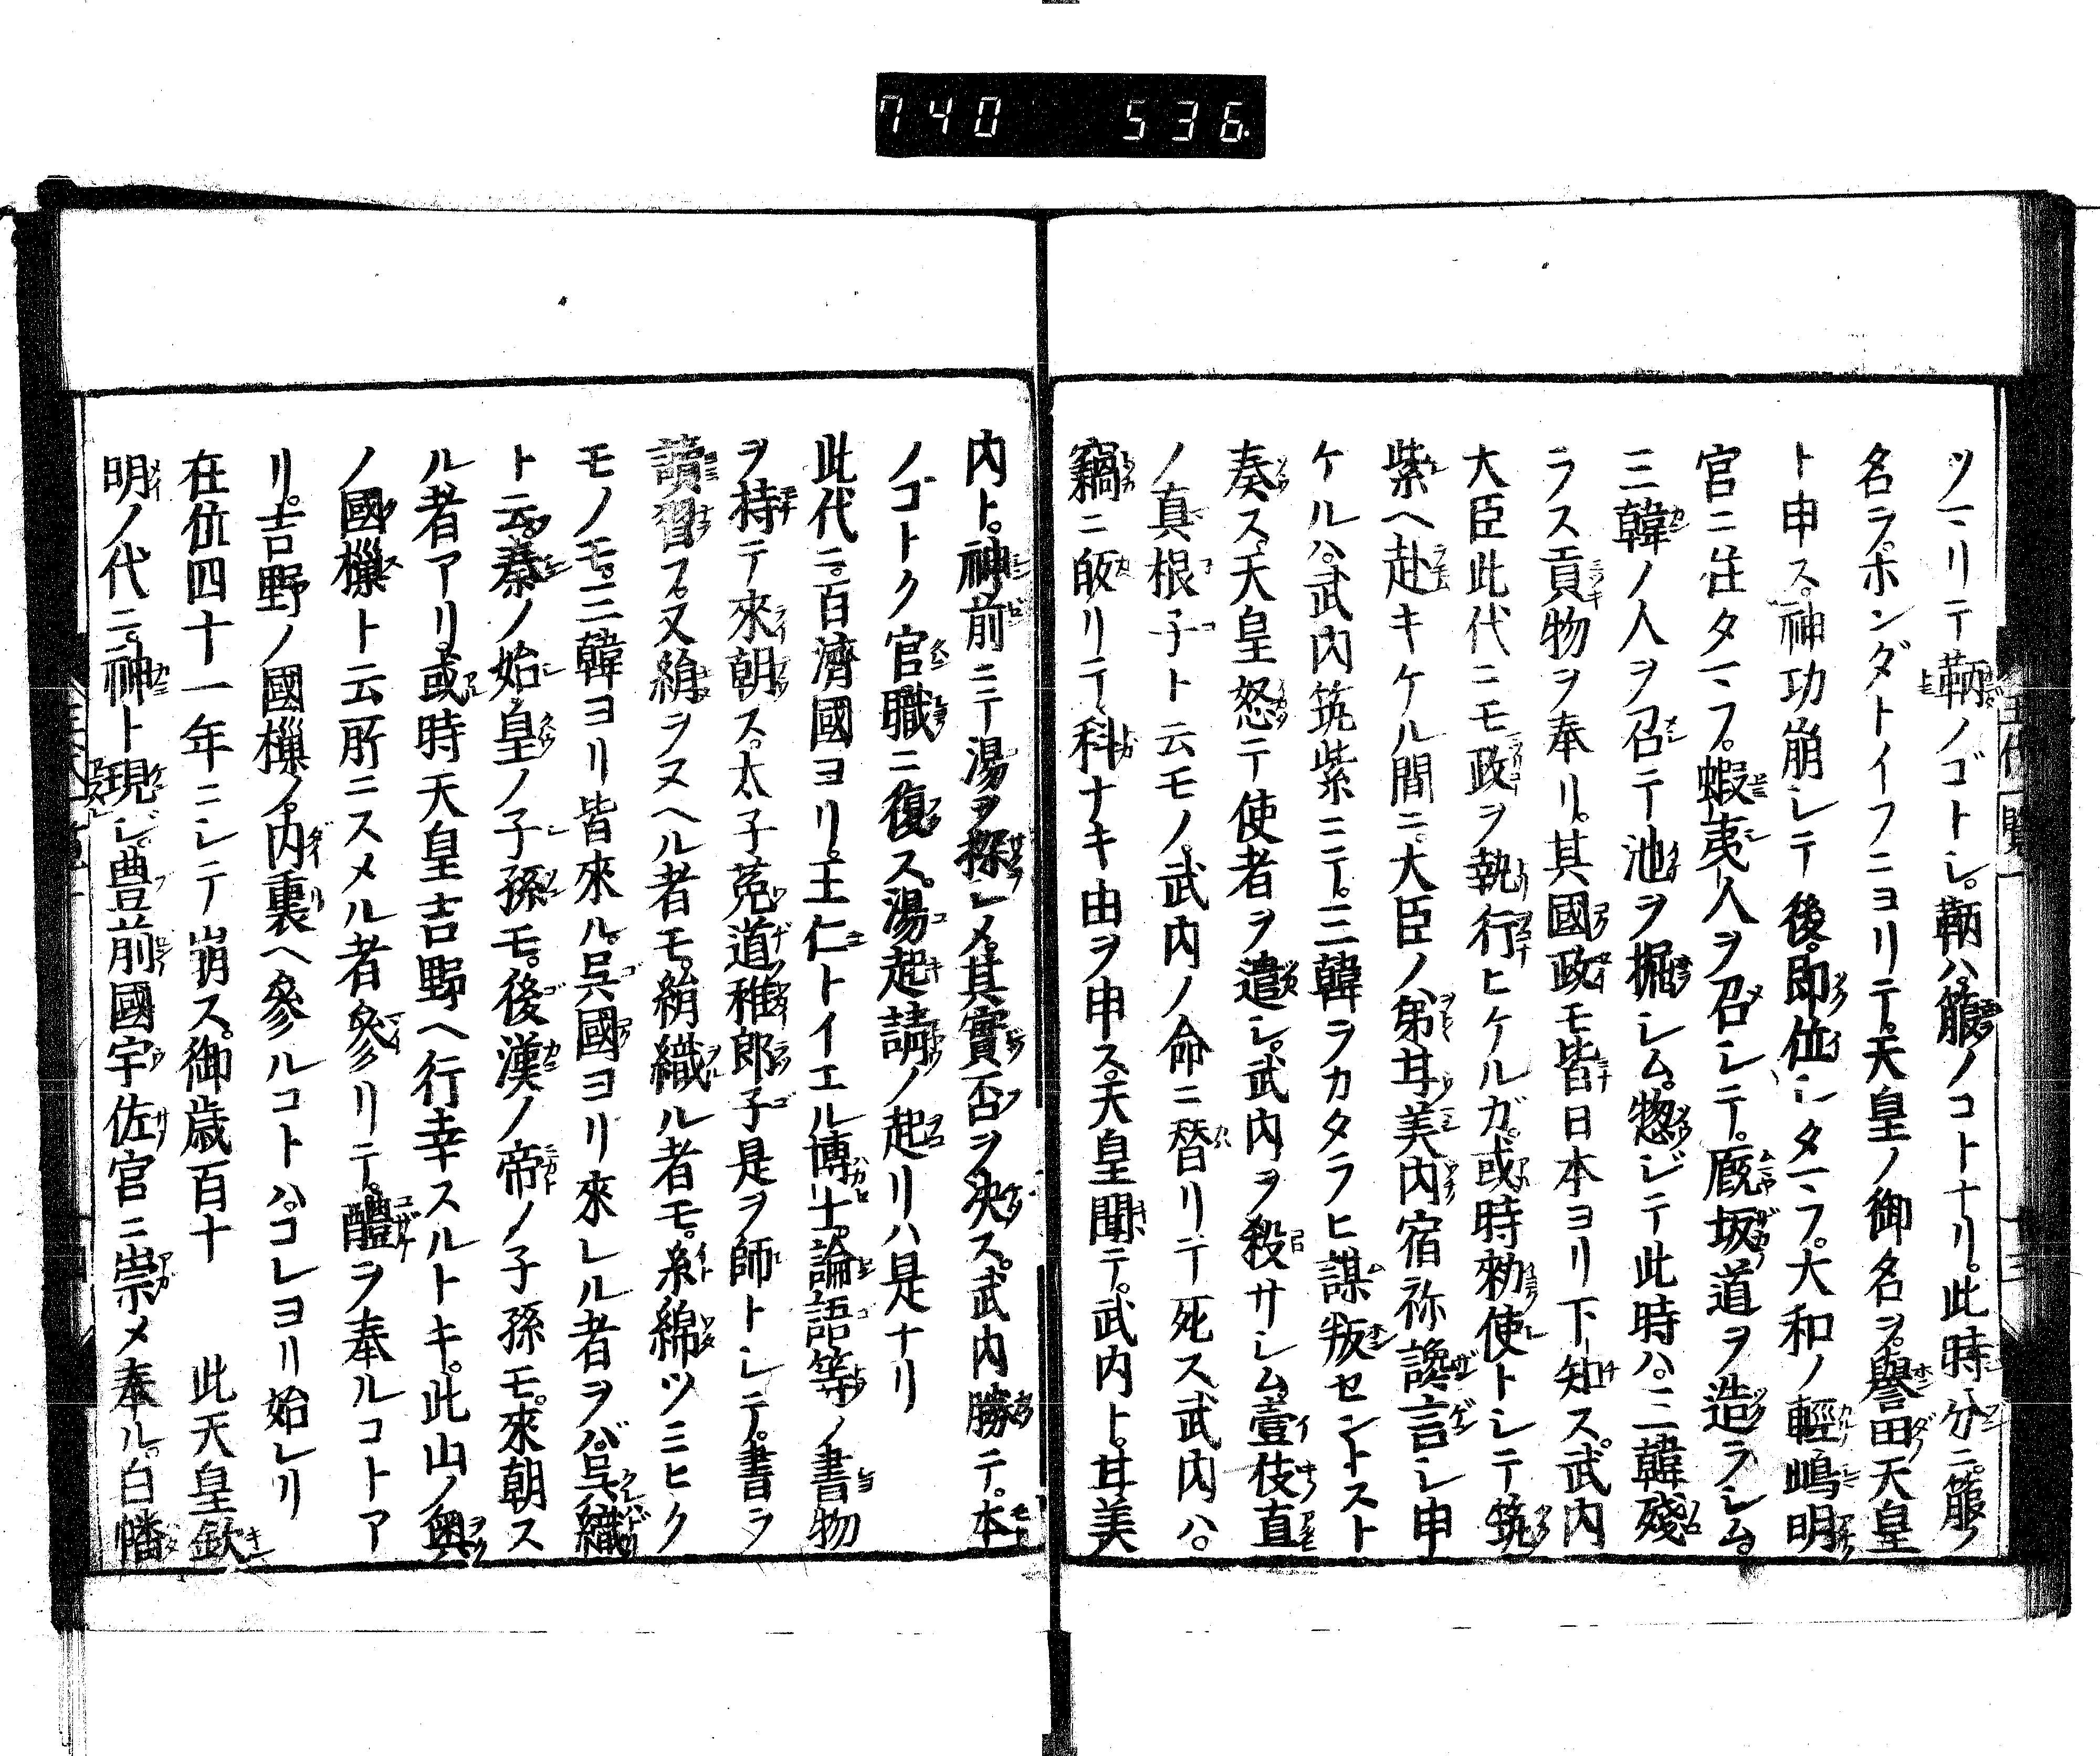 740 536.
ツマリテ鞆ノゴトシ。鞆ハ箙ノコトナリ。此時分ニ。箙ノ
名ヲ。ホンダトイフニヨリテ。天皇ノ御名ヲ。譽田天皇
ト申ス。神功崩シテ後。即位シタマフ。大和ノ輕嶋明
宮ニ住タマフ。蝦夷人ヲ召シテ。厩坂道ヲ造ラシム。
三韓ノ人ヲ召テ池ヲ掘シム。惣ジテ此時ハ。三韓殘
ラス貢物ヲ奉リ。其國政モ皆日本ヨリ下知ス。武内
大臣此代ニモ政ヲ執行ヒケルガ。或時勅使トシテ筑
紫ヘ赴キケル間ニ。大臣ノ弟甘美内宿祢讒言シ申
ケルハ。武内筑紫ニテ。三韓ヲカタラヒ謀叛セントスト
奏ス。天皇怒テ使者ヲ遣シ。武内ヲ殺サシム。壹伎直
ノ真根子ト云モノ。武内ノ命ニ替リテ死ス武内ハ。
竊ニ皈リテ。科ナキ由ヲ申ス。天皇聞テ。武内ト。甘美
内ト。神前ニテ湯ヲ探シメ。其實否ヲ決ス。武内勝テ。本
ノコトク官職ニ復ス。湯起請ノ起リハ是ナリ
此代ニ。百濟國ヨリ。王仁トイエル博士。論語等ノ書物
ヲ持テ來朝ス。太子菟道稚郎子是ヲ師トシテ。書ヲ
讀習フ。又絹ヲヌヘル者モ。絹織ル者モ。糸綿ツミヒク
モノモ。三韓ヨリ皆來ル。呉國ヨリ來レル者ヲバ。呉織
ト云。秦ノ始皇ノ子孫モ。後漢ノ帝ノ子孫モ。來朝ス
ル者アリ。或時天皇吉野ヘ行幸スルトキ。此山ノ奥
ノ國樔ト云所ニスメル者參リテ。醴ヲ奉ルコトア
リ。吉野ノ國樔ノ。内裏ヘ參ルコトハ。コレヨリ始レリ
在位四十一年ニシテ崩ス。御歳百十 此天皇欽
明ノ代ニ。神ト現シ。豊前國宇佐宮ニ崇メ奉ル。白幡